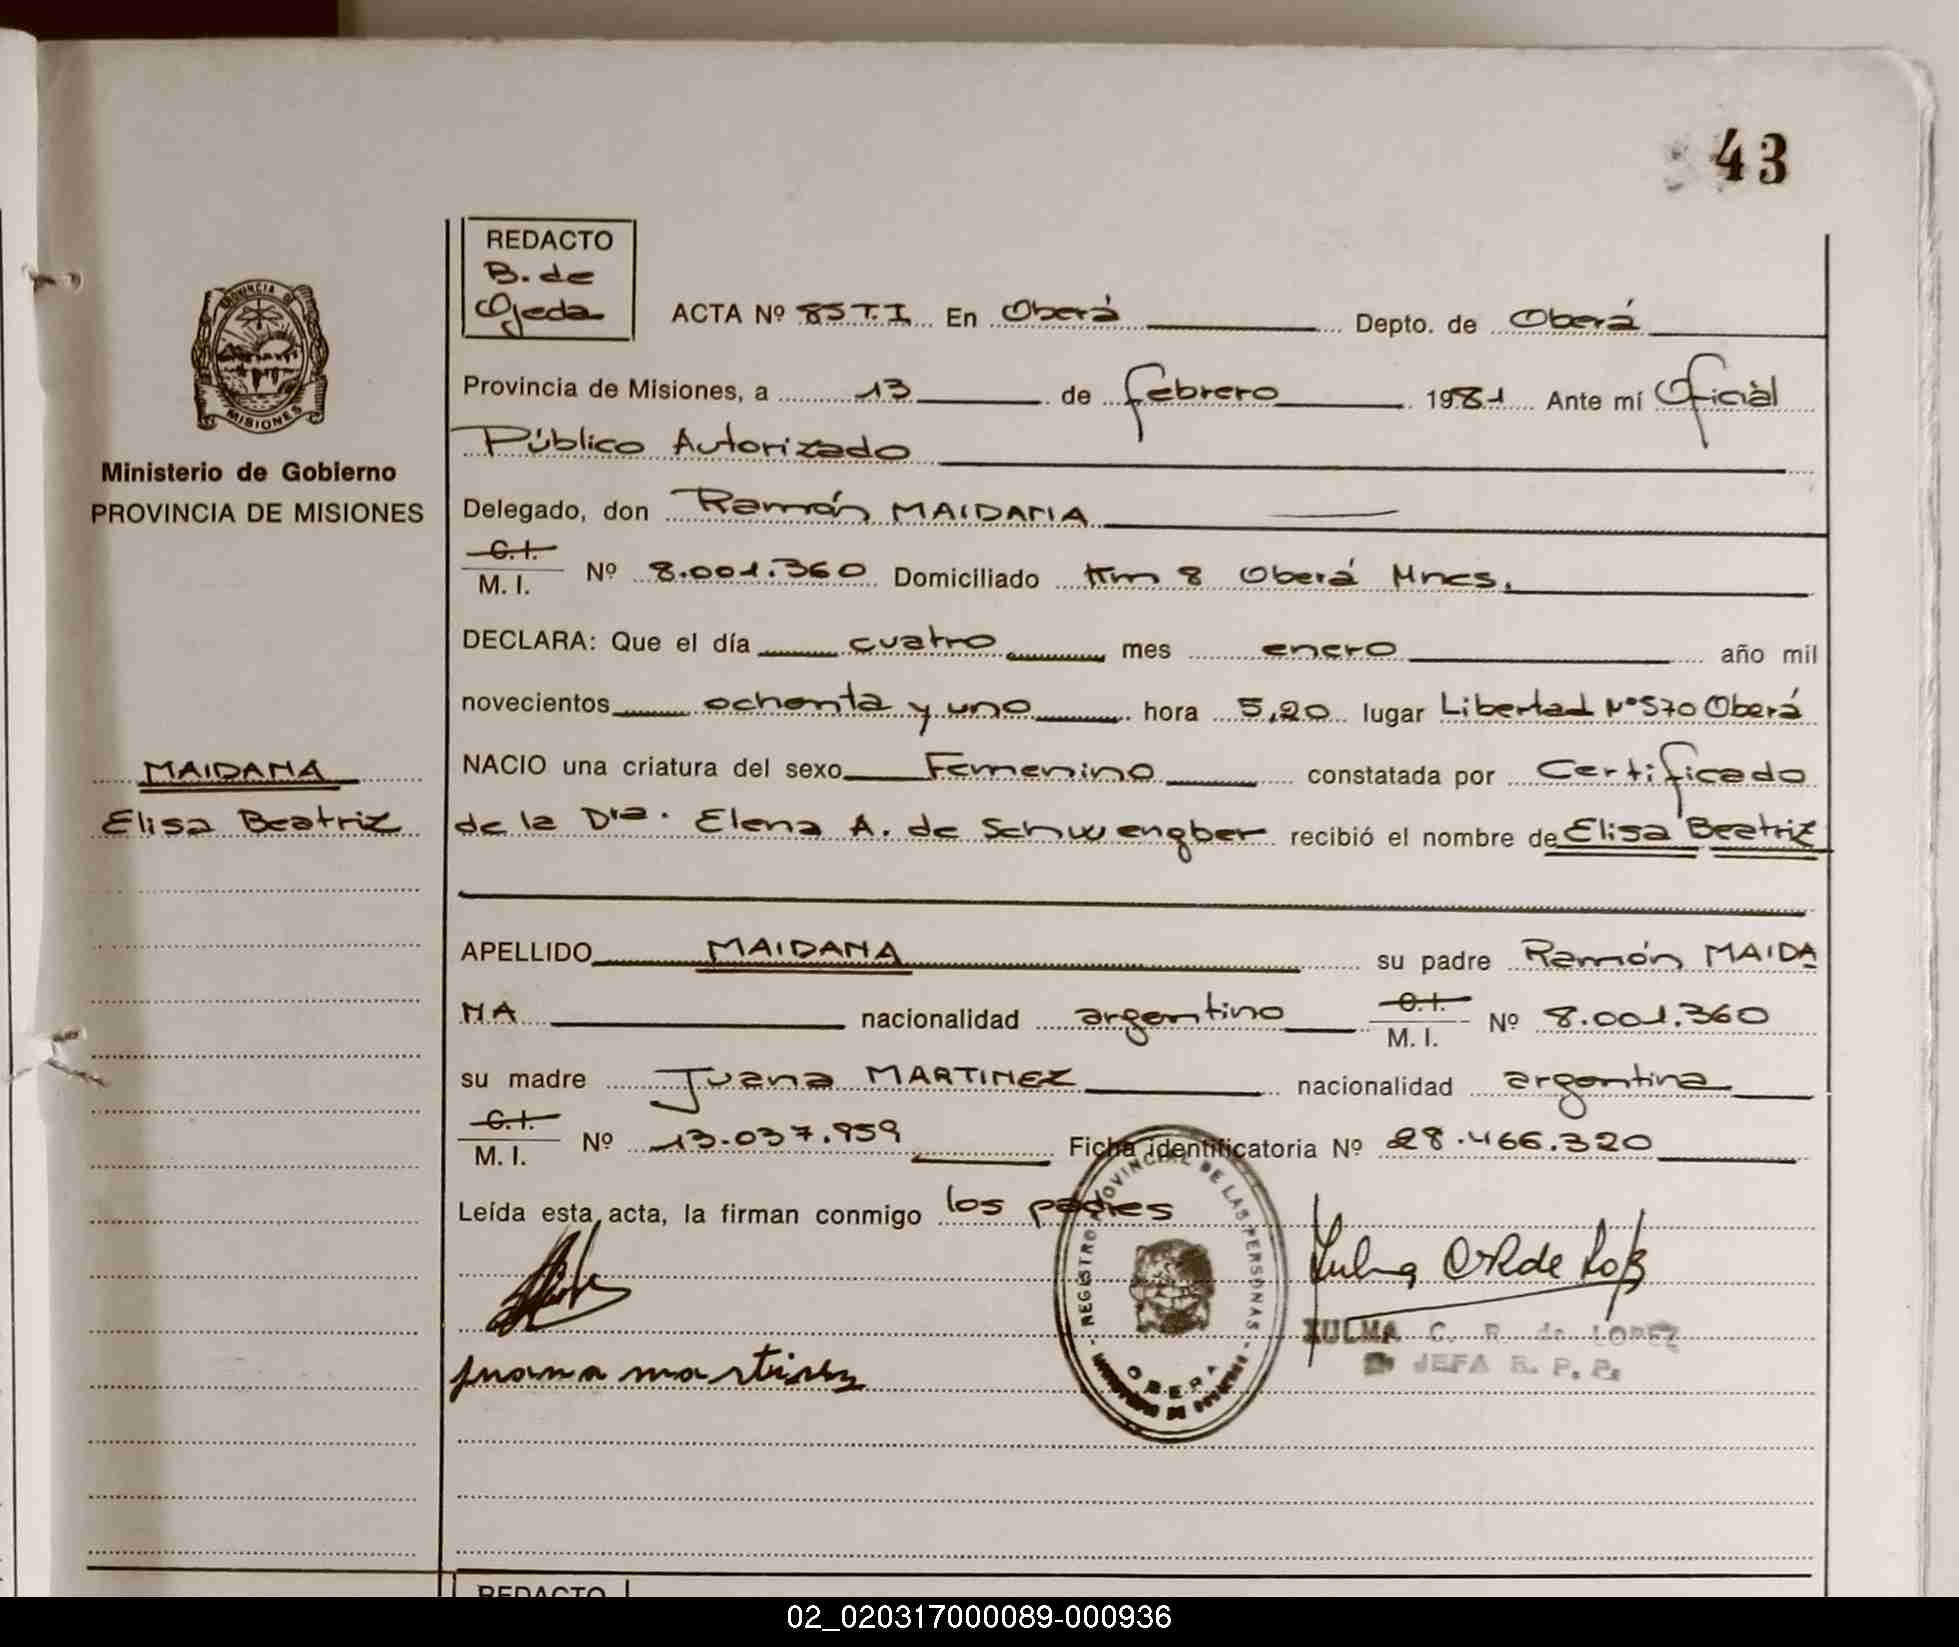 43
REDACTO
B. de
Ojeda
ACTA Nº 85 T.I En Oberá Depto. de Oberá
Provincia de Misiones, a 13 de febrero 1981 Ante mí Oficial
Público Autorizado
PROVINCIA DE
MISIONES
Ministerio de Gobierno
PROVINCIA DE MISIONES
Delegado, don Ramón MAIDANA
C. I.
M. I. Nº 8.001.360 Domiciliado Km 8 Oberá Mnes.
DECLARA: Que el día cuatro mes enero año mil
novecientos ochenta y uno hora 5,20 lugar Libertad Nº 570 Oberá
MAIDANA
Elisa Beatriz
NACIO una criatura del sexo Femenino constatada por Certificado
de la Dra. Elena A. de Schwengber recibió el nombre de Elisa Beatriz
APELLIDO MAIDANA su padre Ramón MAIDA
NA nacionalidad argentino C. I. M. I. Nº 8.001.360
su madre Juana MARTINEZ nacionalidad argentina
C. I.
M. I. Nº 13.037.959 Ficha identificatoria Nº 28.466.320
Leída esta acta, la firman conmigo los padres
REGISTRO PROVINCIAL DE LAS PERSONAS
OBERA
MINISTERIO DE GOBIERNO
juana martinez
ZULMA C. R. de LOPEZ
JEFA R. P. P.
REDACTO
02_020317000089-000936